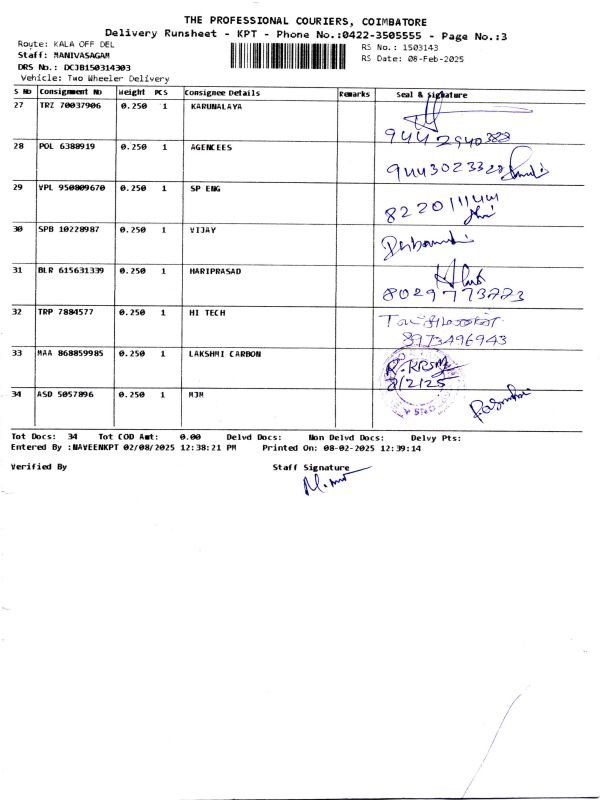 THE PROFESSIONAL COURIERS, COIMBATORE
Delivery Runsheet - KPT - Phone No.:0422-3505555 - Page No.:3
Route: KALA OFF DEL
RS No.: 1503143
Staff: MANIVASAGAM
RS Date: 08-Feb-2025
DRS No.: DCJB150314303
Vehicle: Two Wheeler Delivery
S NO Consignment NO Weight PCS Consignee Details Remarks Seal & signature
27 TRZ 70037906 0.250 1 KARUNALAYA
9442940388
28 POL 6388919 0.250 1 AGENCEES
9443023328
29 VPL 950809670 0.250 1 SP ENG
8220111441
30 SPB 10228987 0.250 1 VIJAY
31 BLR 615631339 0.250 1 HARIPRASAD
8029773223
32 TRP 7884577 0.250 1 HI TECH
8973496943
33 MAA 868859985 0.250 1 LAKSHMI CARBON
8/2/25
34 ASD 5057896 0.250 1 MJM
Tot Docs: 34 Tot COD Amt: 0.00 Delvd Docs: Non Delvd Docs: Delvy Pts:
Entered By :NAVEENKPT 02/08/2025 12:38:21 PM Printed On: 08-02-2025 12:39:14
Verified By Staff Signature